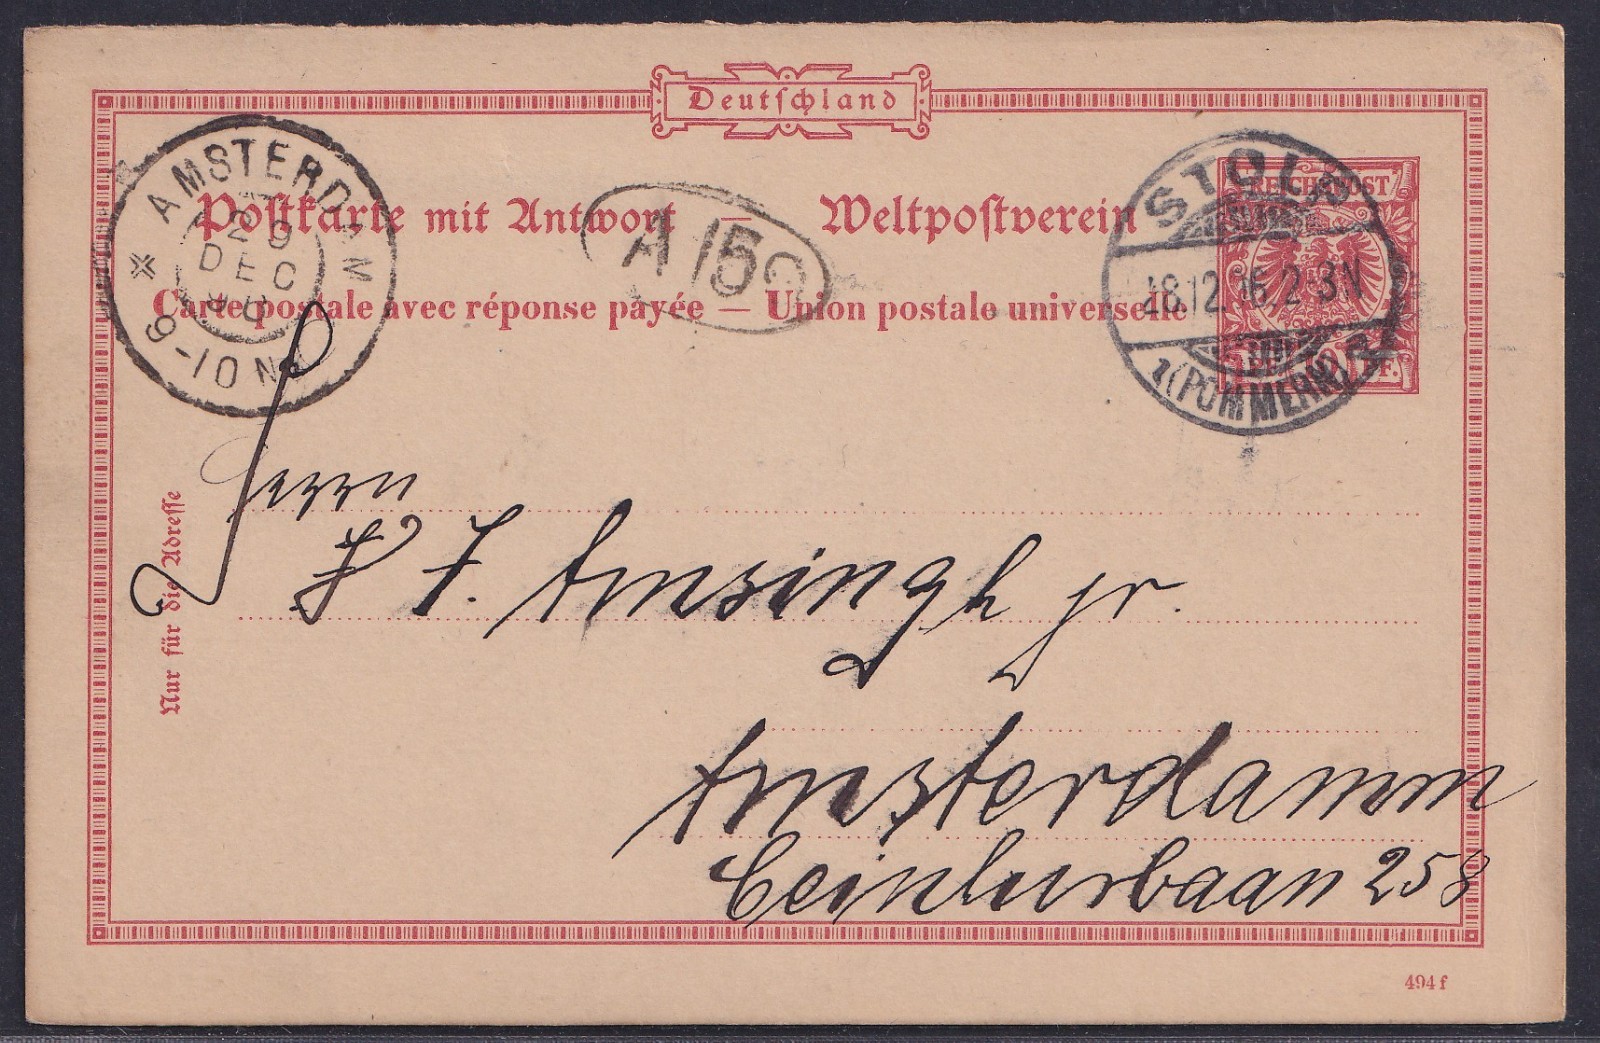 Deutschland
Postkarte mit Antwort — Weltpostverein
Carte postale avec réponse payée — Union postale universelle
AMSTERDAM
DEC
9-10N
A 150
REICHSPOST
STOLP
2-3N
1 (POMMERN)
Nur für die Adresse
Herrn
F. Amsingh jr.
Amsterdamm
Ceinturbaan 258
494 f